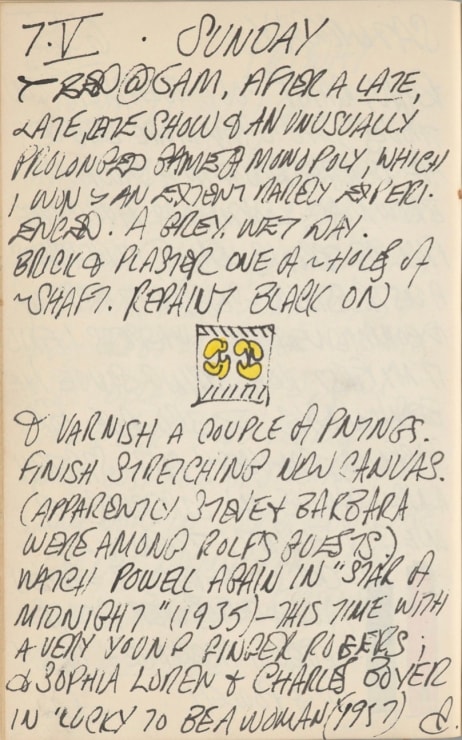 7.V . SUNDAY
BED @ 6AM, AFTER A LATE,
LATE, LATE SHOW & AN UNUSUALLY
PROLONGED GAME OF MONOPOLY, WHICH
I WON AN EXTENT RARELY EXPERI-
ENCED. A GREY. WET DAY.
BRICK & PLASTER ONE OF ~ HOLES OF
~ SHAFT. REPAINT BLACK ON
& VARNISH A COUPLE OF PNTNGS.
FINISH STRETCHING NEW CANVAS.
(APPARENTLY STEVE & BARBARA
WERE AMONG ROLF'S GUESTS.)
WATCH POWELL AGAIN IN "STAR OF
MIDNIGHT" (1935) – THIS TIME WITH
A VERY YOUNG GINGER ROGERS;
& SOPHIA LOREN & CHARLES BOYER
IN "LUCKY TO BE A WOMAN" (1957)